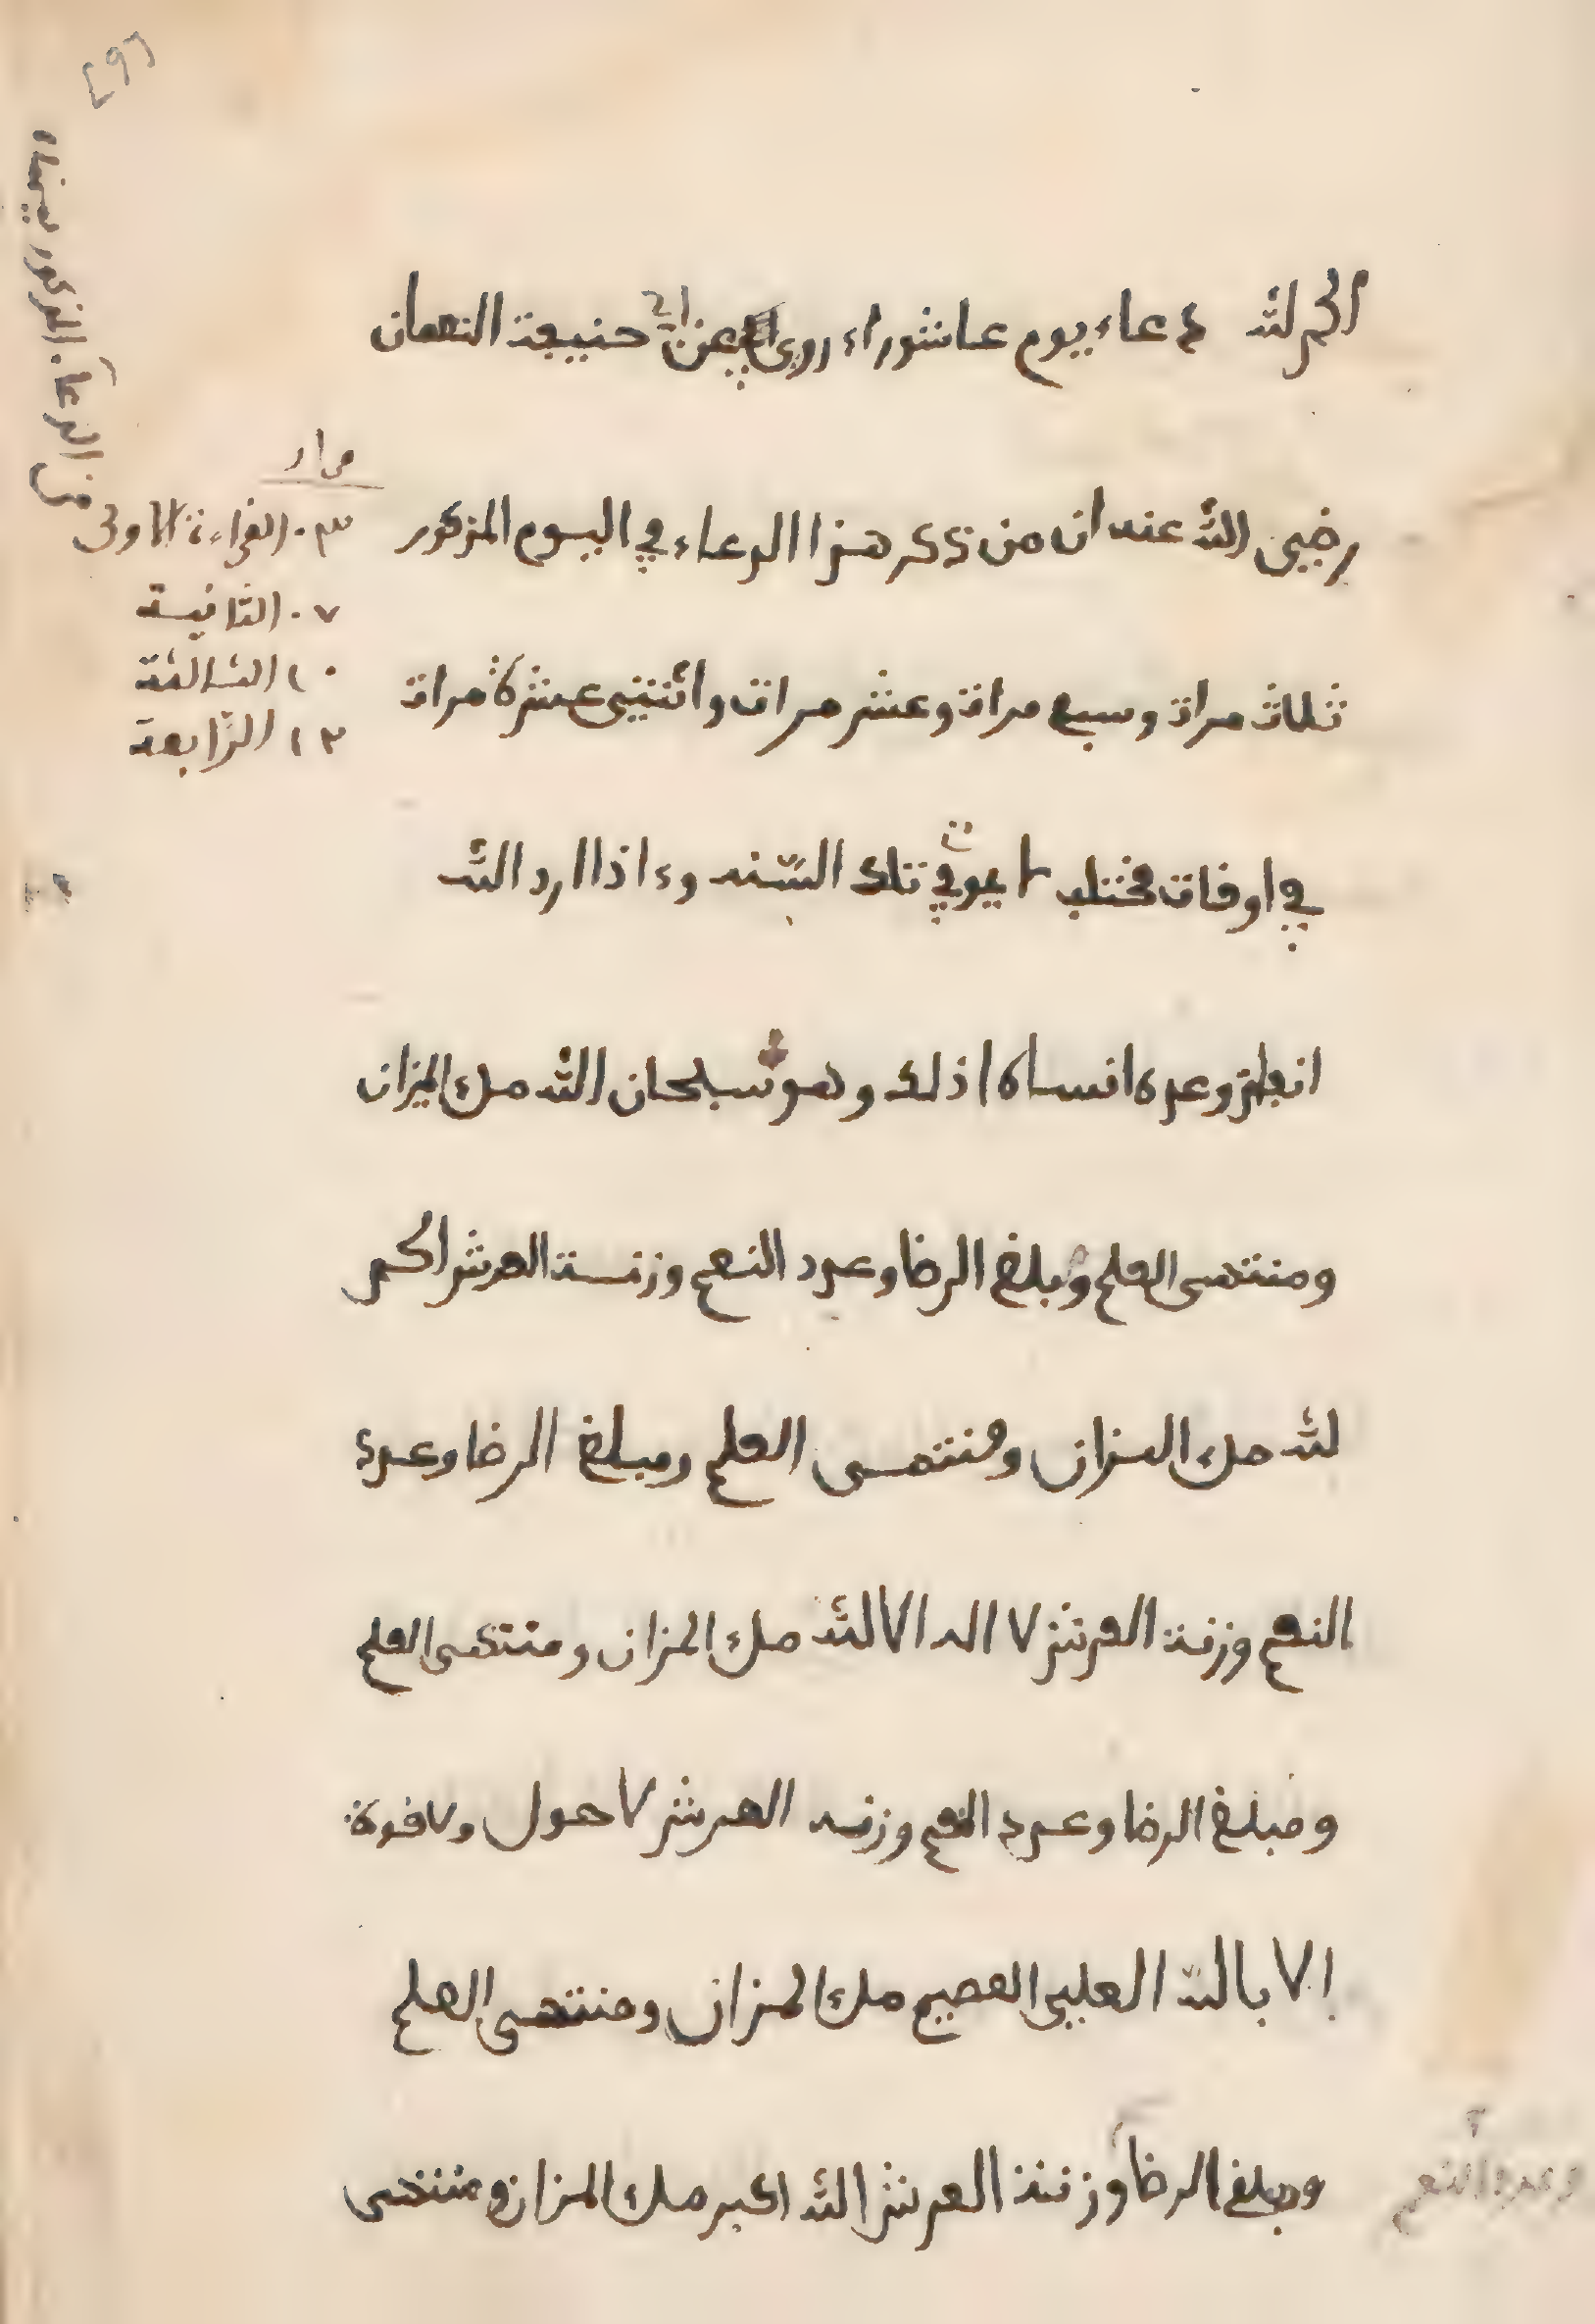 [٩]
الحمد لله دعاء يوم عاشوراء روي عن ابي حنيفة النعمان
رضي الله عنه ان من ذكر هذا الدعاء في اليوم المذكور
ثلاث مراة وسبع مراة وعشر مراة واثنتى عشرة مراة
في اوقات مختلف لا يموت في تلك السنه وءاذا ارد الله
وعده انساه اذلك وهو سبحان الله ملء الميزان
ومنتهى العلم ومبلغ الرضا وعدد النعم وزنة العرش الحمد
لله ملء الميزان ومنتهى العلم ومبلغ الرضا وعدد
النعم وزنة العرش لا اله الا الله ملء المزان ومنتهى العلم
ومبلغ الرضا وعدد النعم وزنه العرش لا حول ولا قوة
الا بالله العلي العصيم ملء المزان ومنتهى العلم
ومبلغ الرضا وزنة العرش الله اكبر ملء المزان ومنتهى
وعدد النعم
مرار
٣ . القراءة الاولى
٧ . الثانية
١٠ الثالثة
١٢ الرابعة
من الدعاء المذكور